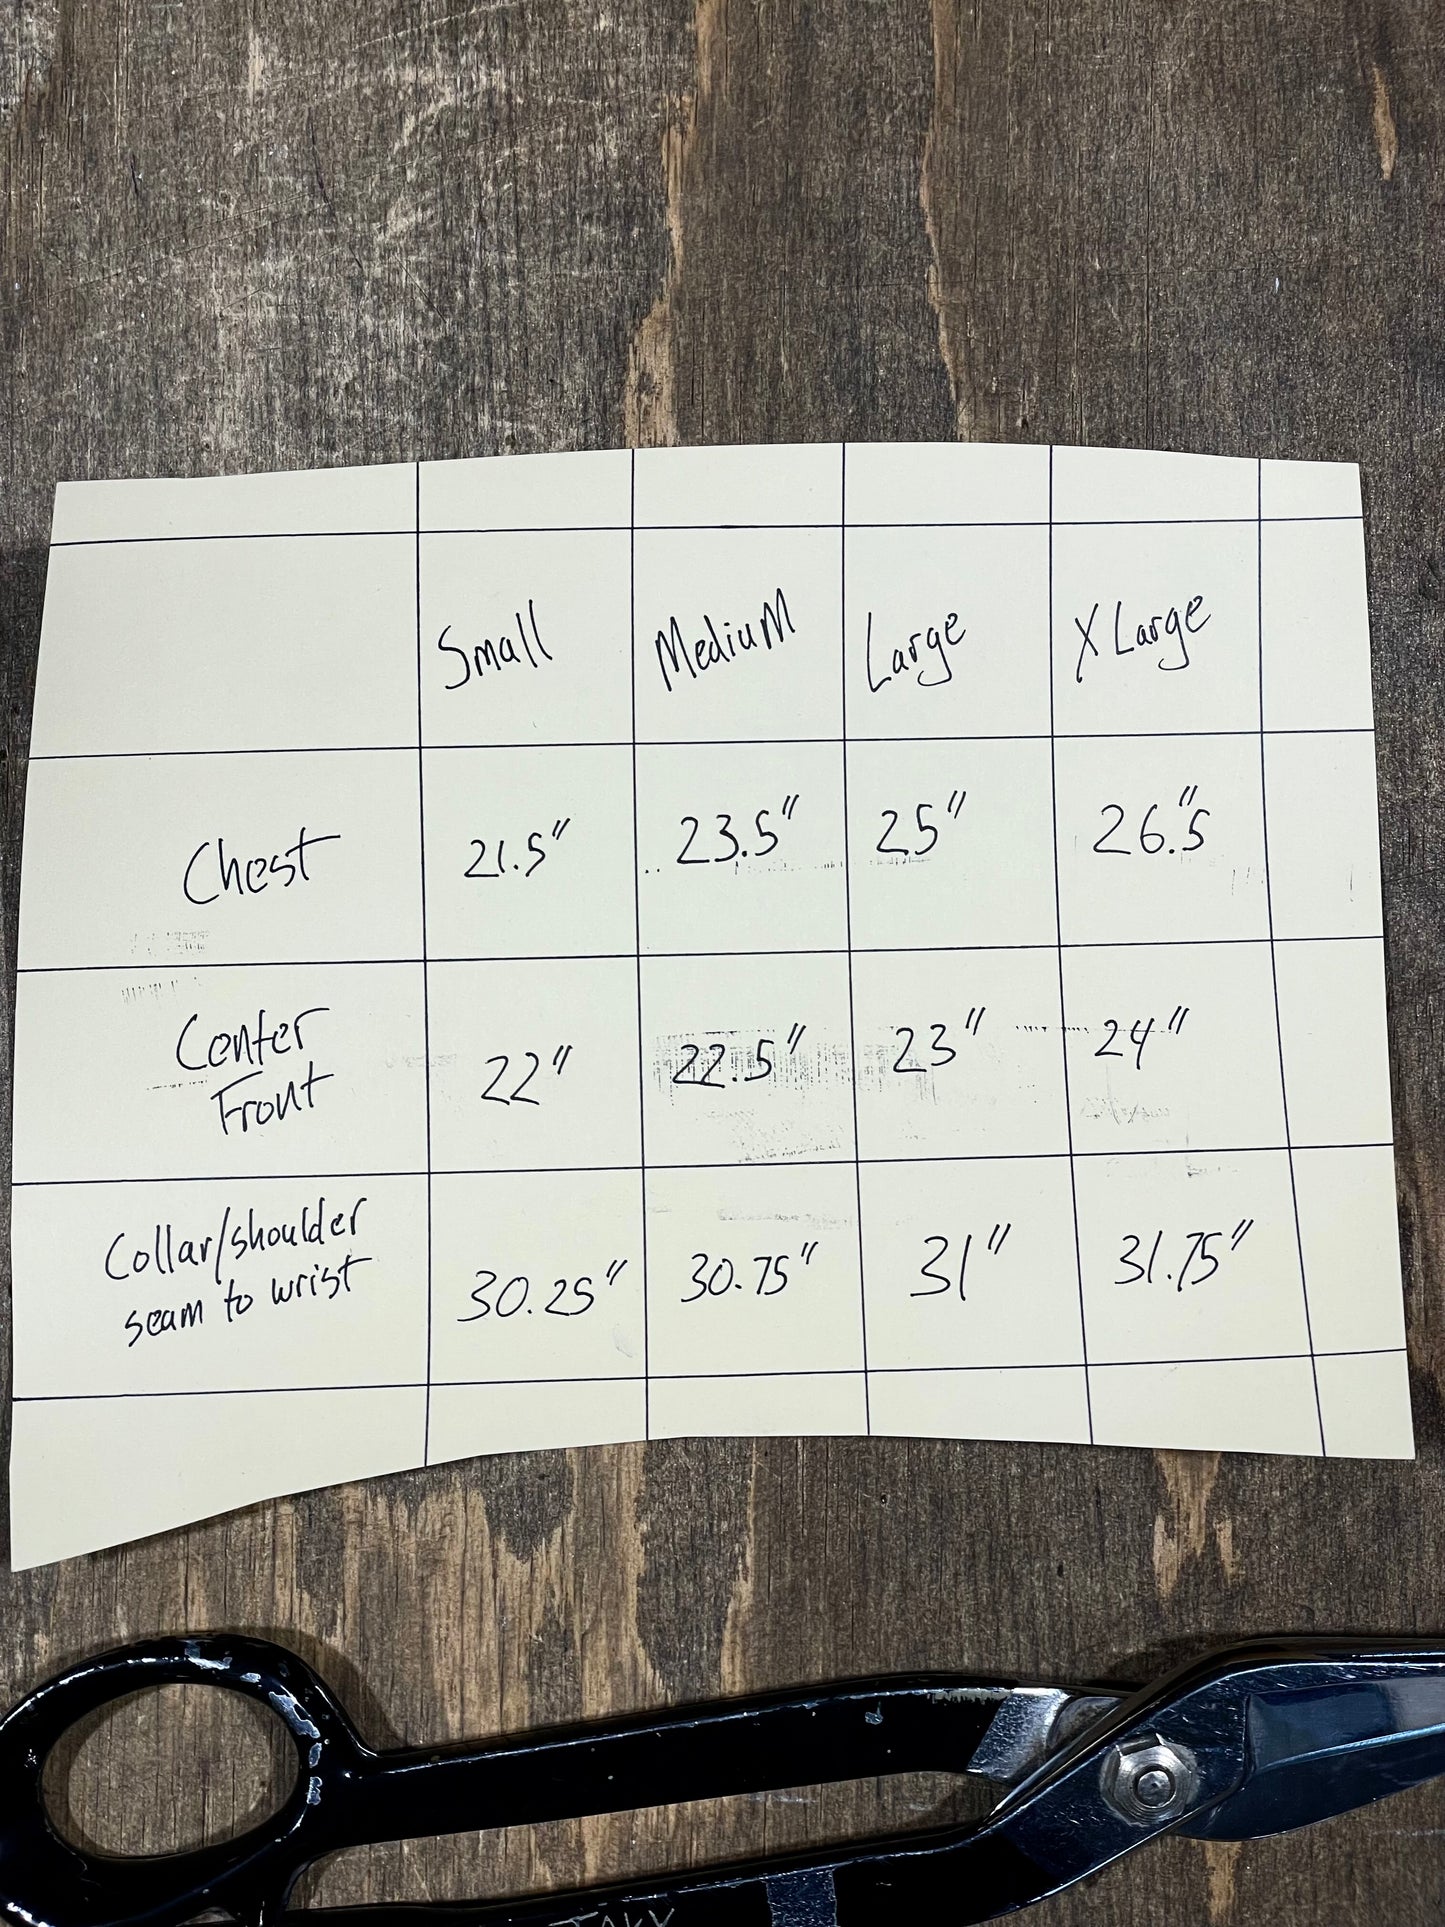 Small Medium Large X Large
Chest 21.5" 23.5" 25" 26.5"
Center
Front 22" 22.5" 23" 24"
Collar/shoulder
seam to wrist 30.25" 30.75" 31" 31.75"